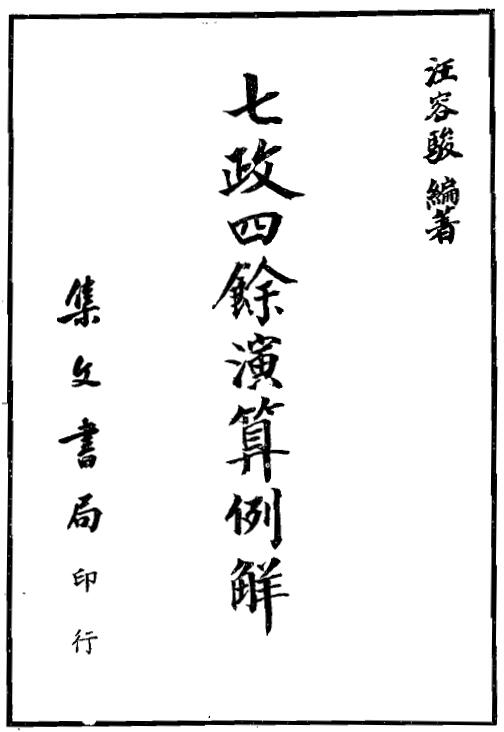 汪容駿 編著
七政四餘演算例解
集文書局印行